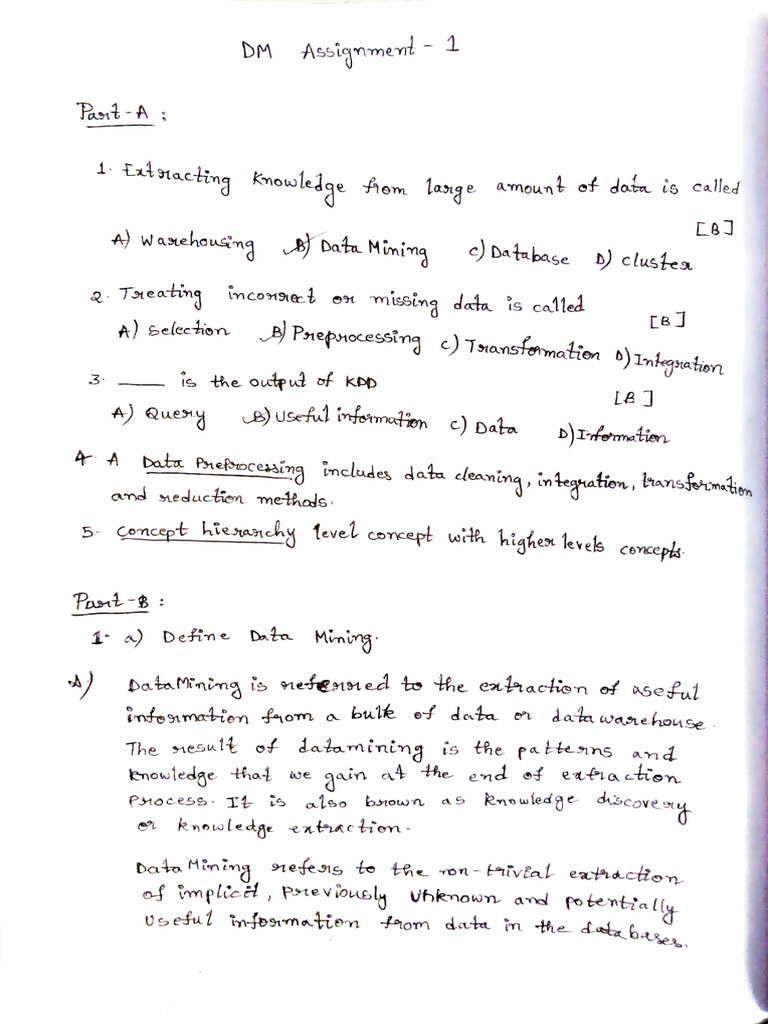 DM Assignment - 1
Part-A :
1. Extracting knowledge from large amount of data is called
[B]
A) Warehousing B) Data Mining C) Database D) Cluster
2. Treating incorrect or missing data is called [B]
A) Selection B) Preprocessing C) Transformation D) Integration
3. ____ is the output of KDD [B]
A) Query B) Useful information C) Data D) Information
4. A Data Preprocessing includes data cleaning, integration, transformation
and reduction methods.
5. Concept hierarchy level concept with higher levels concepts.
Part-B :
1. a) Define Data Mining.
A) Data Mining is referred to the extraction of useful
information from a bulk of data or data warehouse.
The result of datamining is the patterns and
knowledge that we gain at the end of extraction
process. It is also brown as knowledge discovery
or knowledge extraction.
Data Mining refers to the non-trivial extraction
of implicit, previously unknown and potentially
useful information from data in the databases.